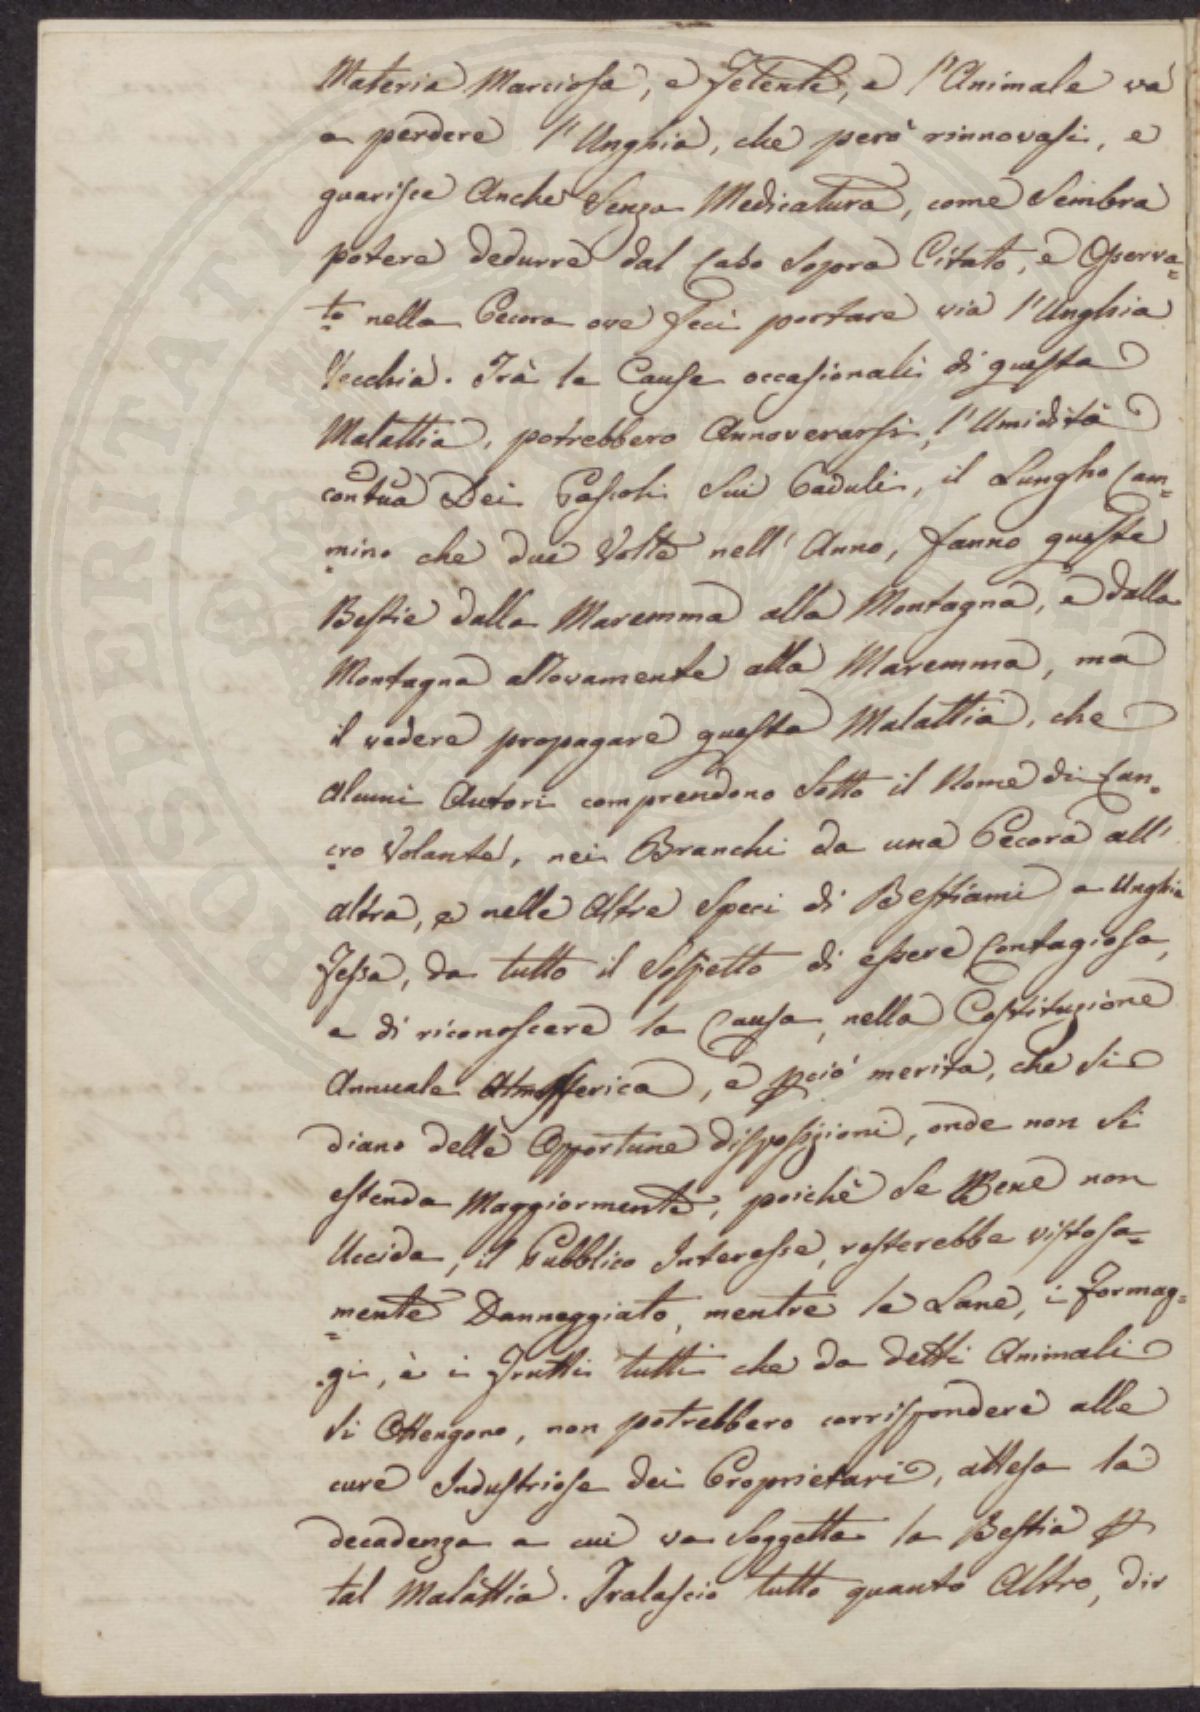 Materia Marciosa, e Fetente, e l'Animale và
a perdere l'Unghia, che però rinnovasi, e
guarisce Anche Senza Medicatura, come Sembra
potere dedurre dal Caso Sopra Citato, e Osserva=
to nella Pecora ove Feci portare via l'Unghia
Vecchia. Trà le Cause occasionali di questa
Malattia, potrebbero Annoverarsi, l'Umidità
contua Dei Pascoli Sui Paduli, il Lungho Cam=
mino che due Volte nell'Anno, fanno queste
Bestie dalla Maremma alla Montagna, e dalla
Montagna Novamente alla Maremma, ma
il vedere propagare questa Malattia, che
alcuni Autori comprendono Sotto il Nome di Can=
cro Volante, nei Branchi da una Pecora all'
altra, e nelle Altre Speci di Bestiami a Unghia
Fessa, da tutto il Sospetto di essere Contagiosa,
e di riconoscere la Causa, nella Costituzione
Annuale Atmosferica, e pciò merita, che Si
diano delle Opportune disposizioni, onde non Si
estenda Maggiormente, poichè Se Bene non
Uccida, il Pubblico Interesse, resterebbe vistosa=
mente Danneggiato, mentre le Lane, i Formag=
gi, è i Frutti tutti che da detti Animali
Si Ottengono, non potrebbero corrispondere alle
cure Industriose dei Proprietari, attesa la
decadenza a cui va Soggetta la Bestia p
tal Malattia. Tralascio tutto quanto Altro, dir
PROSPERITATI PUBLICAE